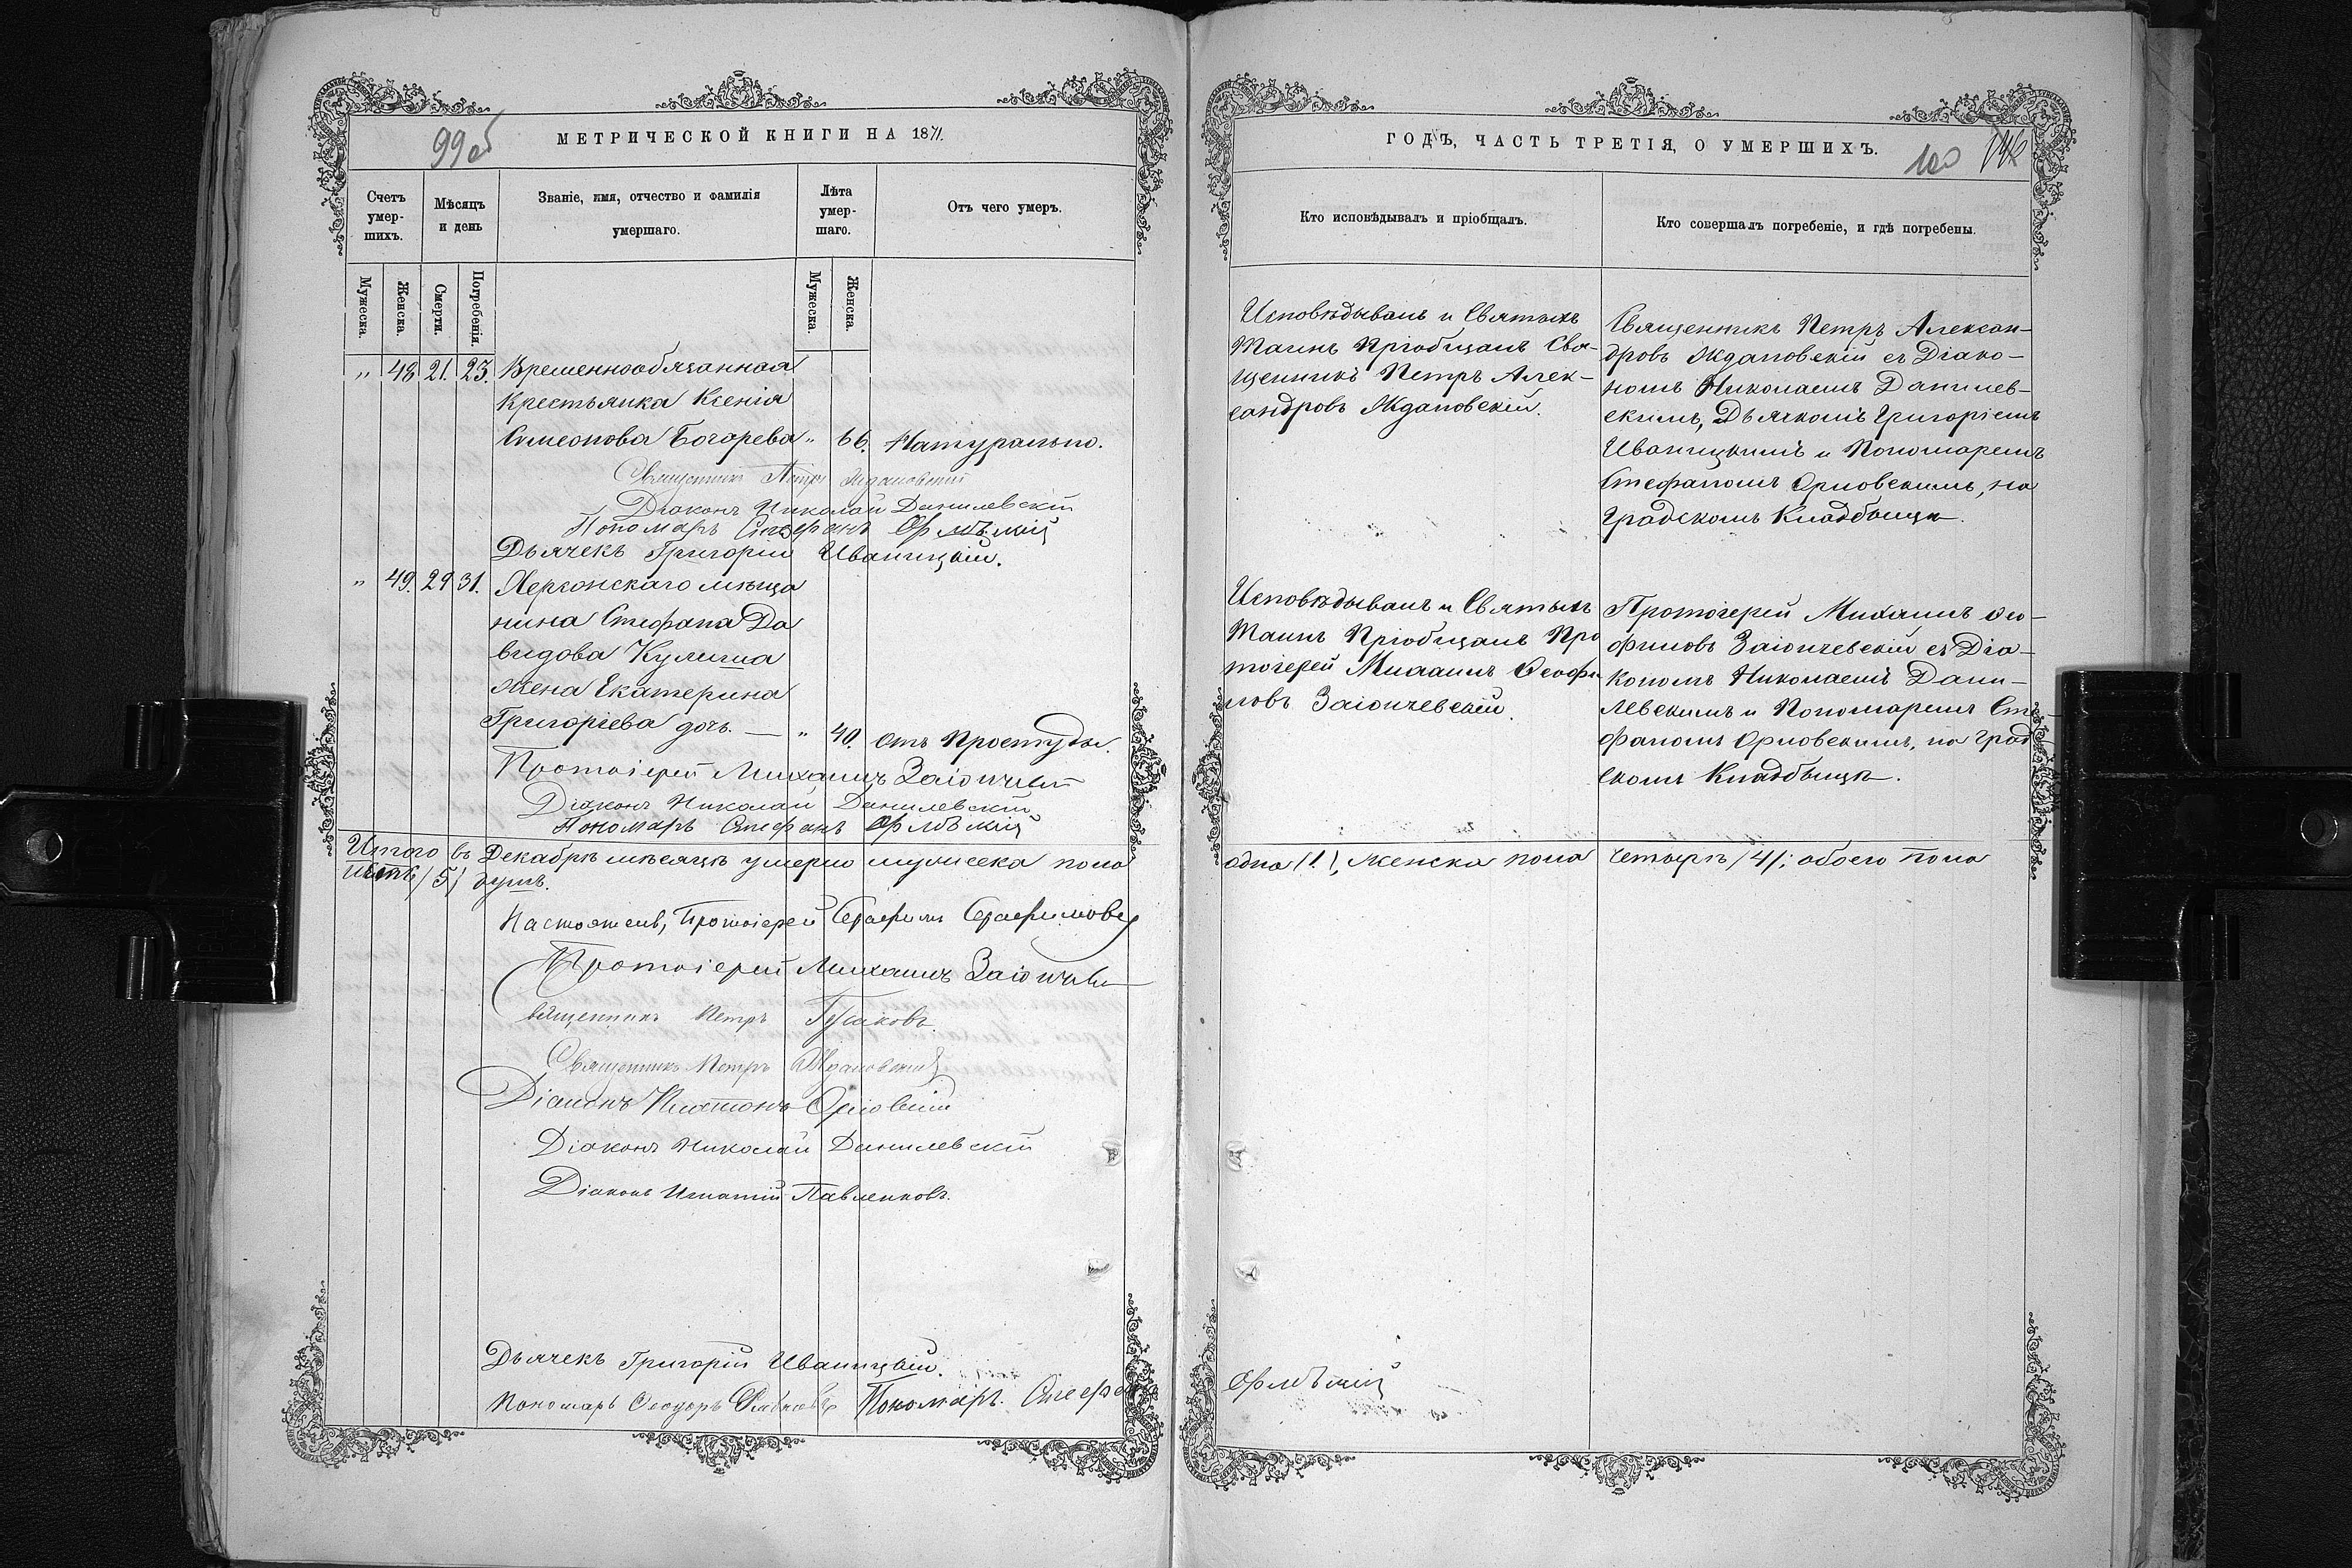 99об
МЕТРИЧЕСКОЙ КНИГИ НА 1871.
Счетъ умер-шихъ.
Мѣсяцъ и день
Званіе, имя, отчество и фамилія умершаго.
Лѣта умер-шаго.
Отъ чего умеръ.
Мужеска.
Женска.
Смерти.
Погребенія.
Мужеска.
Женска.
„ 48 21. 23. Временнообязанная
Крестьянка Ксенія
Симеонова Богарева „ 66. Натурально.
Священникъ Петръ Ждановскій
Діаконъ Николай Данилевскій
Пономарь Стефанъ Орловскій
Дьячекъ Григорій Иваницкій.
„ 49. 29 31. Херсонскаго мѣща
нина Стефана Да
видова Кулиша
жена Екатерина
Григоріева дочь. — „ 40. отъ Простуды.
Протоіерей Михаилъ Заіончевскій
Діаконъ Николай Данилевскій
Пономарь Стефанъ Орловскій
Итого въ Декабрѣ мѣсяцѣ умерло мужеска пола
пять /5/ душъ.
Настоятель, Протоіерей Серафимъ Серафимовъ
Протоіерей Михаилъ Заіончевскій
Священникъ Петръ
Священникъ Петръ Ждановскій
Діаконъ Платонъ Орловскій
Діаконъ Николай Данилевскій
Діаконъ Игнатій Павленковъ.
Дьячекъ Григорій Иваницкій.
Пономарь Ѳеодоръ Пономарь. Стефанъ
ГОДЪ, ЧАСТЬ ТРЕТІЯ, О УМЕРШИХЪ.
100
Кто исповѣдывалъ и пріобщалъ.
Кто совершалъ погребеніе, и гдѣ погребены.
Исповѣдывалъ и Святыхъ
Таинъ Пріобщалъ Свя-
щенникъ Петръ Алек-
сандровъ Ждановскій.
Священникъ Петръ Алексан-
дровъ Ждановскій съ Діако-
номъ Николаемъ Данилев-
скимъ, Дьячкомъ Григоріемъ
Иваницкимъ и Пономаремъ
Стефаномъ Орловскимъ, на
Градскомъ Кладбищѣ.
Исповѣдывалъ и Святыхъ
Таинъ Пріобщалъ Про
тоіерей Михаилъ Ѳеофи
ловъ Заіончевскій.
Протоіерей Михаилъ Ѳео-
филовъ Заіончевскій съ Діа-
кономъ Николаемъ Дани-
левскимъ и Пономаремъ Сте-
фаномъ Орловскимъ, на Град-
скомъ Кладбищѣ.
одна /1/, женска пола четыре /4/; обоего пола
Орловскій